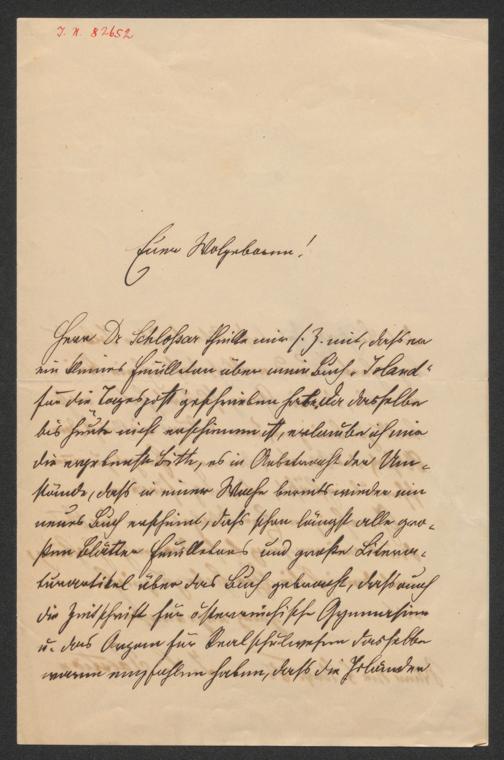 J. N. 82652
Euer Wolgeboren!
Herr Dr Schlossar theilte mir s. Z. mit, dass er
ein kleines Feuilleton über mein Buch „Island“
für die Tagespost geschrieben habe, da dasselbe
bis heute nicht erschienen ist, erlaube ich mir
die ergebenste Bitte, es in Anbetracht der Um-
stände, dass in einer Woche bereits wieder ein
neues Buch erscheint, dass schon längst alle gro-
ßen Blätter Feuilletons und große Litera-
turartikel über das Buch gebracht, dass auch
die Zeitschrift für österreichische Gymnasien
u. das Organ für Realschulwesen dasselbe
warm empfohlen haben, dass die Isländer